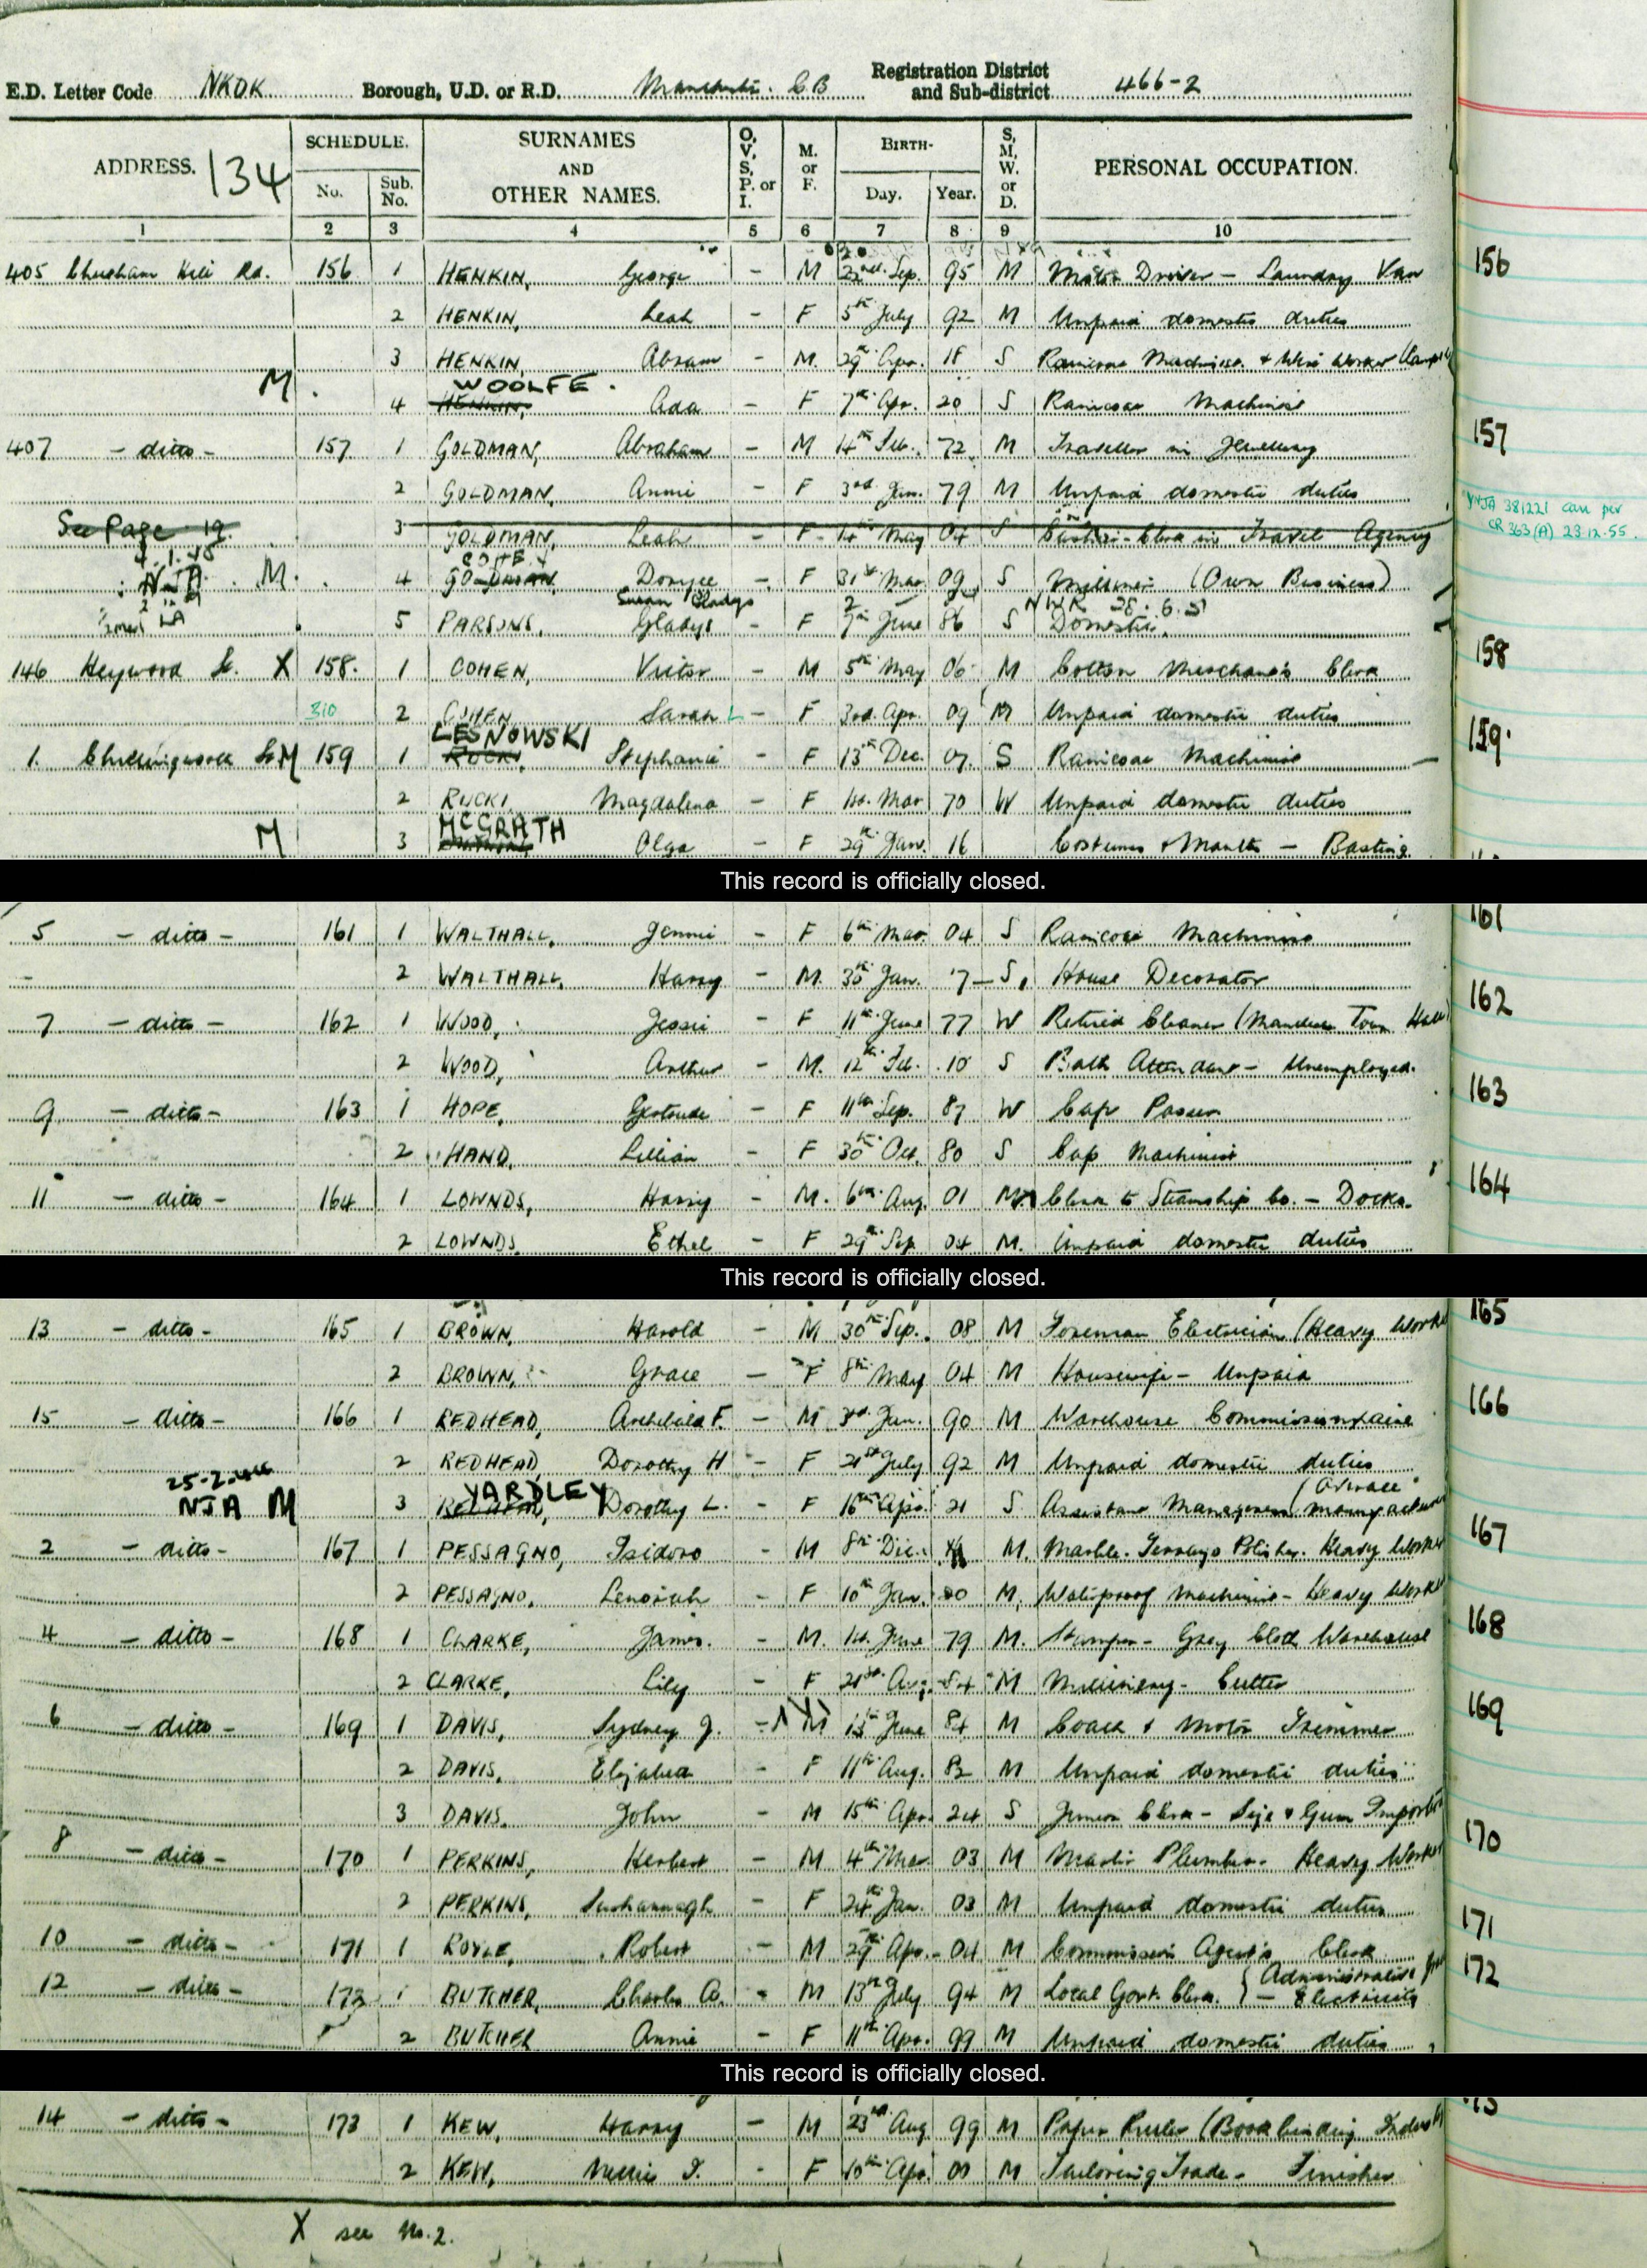 E.D. Letter Code NKDK Borough, U.D. or R.D. C.B Registration District and Sub-district 466-2
ADDRESS. 134 SCHEDULE. No. Sub. No. SURNAMES AND OTHER NAMES. O, V, S, P. or I. M. or F. BIRTH- Day. Year. S, M, W. or D. PERSONAL OCCUPATION.
1 2 3 4 5 6 7 8 9 10
405 Hill Rd. 156 1 HENKIN, George - M Sep. 95 M Motor Driver - Laundry Van 156
2 HENKIN, Leah - F 5th July 92 M Unpaid domestic duties
3 HENKIN, Abram - M. 29th Apr. 18 S
WOOLFE.
M. 4 HENKIN, Ada - F 7th Apr. 20 S Raincoat Machinist
407 - ditto - 157 1 GOLDMAN, Abraham - M 14th Feb. 72 M Traveller in Jewellery 157
2 GOLDMAN, Annie - F 3rd Jan. 79 M Unpaid domestic duties
See Page 19. 3 GOLDMAN, Leah - F 14th May 04 S Clerk in Travel Agency
NJA 381221 can per
CR 363 (A) 23.12.55.
4.1.45
NJA M. 4 GOLDMAN, - F 31st Mar. 09 S Milliner (Own Business)
Susan Gladys 2 NWR 28.6.51
5 PARSONS, Gladys - F 7th June 86 S Domestic
146 Heywood St. X 158. 1 COHEN, Victor - M 5th May 06 M Cotton Merchant's Clerk 158
310 2 COHEN Sarah L - F 3rd. Apr. 09 M Unpaid domestic duties
LESNOWSKI
1. St. M 159 1 RUCKI, Stephanie - F 13th Dec. 07. S Raincoat Machinist 159.
2 RUCKI, Magdalena - F 1st. Mar 70 W Unpaid domestic duties
MCGRATH
M 3 Olga - F 29th Jan. 16 Costumes & Mantles - Basting
This record is officially closed.
5 - ditto - 161 1 WALTHALL, Jennie - F 6th Mar. 04 S Raincoat Machinist 161
2 WALTHALL, Harry - M. 30th Jan. 17 S, House Decorator
7 - ditto - 162 1 WOOD, Jessie - F 11th June 77 W Retired Cleaner (Manchester Town Hall) 162
2 WOOD, Arthur - M. 12th Feb. 10 S Bath Attendant - Unemployed.
9 - ditto - 163 1 HOPE, Gertrude - F 11th Sep. 87 W Cap Passer 163
2 HAND, Lillian - F 30th Oct. 80 S Cap Machinist
11 - ditto - 164 1 LOWNDS, Harry - M. 6th Aug. 01 M. Clerk to Steamship Co. - Docks. 164
2 LOWNDS, Ethel - F 29th Sep. 04 M. Unpaid domestic duties
This record is officially closed.
13 - ditto - 165 1 BROWN, Harold - M 30th Sep. 08 M Foreman Electrician (Heavy Worker 165
2 BROWN, Grace - F 8th May 04 M Housewife - Unpaid
15 - ditto - 166 1 REDHEAD, Archibald F. - M 3rd Jan. 90 M Warehouse Commissionaire 166
2 REDHEAD, Dorothy H - F 21st July 92 M Unpaid domestic duties
YARDLEY
NJA M 3 REDHEAD, Dorothy L. - F 16th Apr. 21 S Assistant Manageress
2 - ditto - 167 1 PESSAGNO, Isidoro - M 8th Dec. M. Marble. Terrazzo Polisher. Heavy Worker 167
2 PESSAGNO, - F 10th Jan. 00 M, Waterproof Machinist - Heavy Worker
4 - ditto - 168 1 CLARKE, James. - M. 1st. June 79 M. Stamper - Grey Cloth Warehouse 168
2 CLARKE, Lily - F 21st Aug. 84 M Millinery - Cutter
6 - ditto - 169 1 DAVIS, Sydney J. - M 13th June 84 M Coach & Motor Trimmer 169
2 DAVIS, Elizabeth - F 11th Aug. 82 M Unpaid domestic duties
3 DAVIS, John - M 15th Apr. 24 S Junior Clerk - Size & Gum Importer
8 - ditto - 170 1 PERKINS, Herbert - M 4th Mar. 03 M Master Plumber. Heavy Worker 170
2 PERKINS, Sushannagh - F 24th Jan. 03 M Unpaid domestic duties
10 - ditto - 171 1 ROYLE, Robert - M 29th Apr. 04 M Commission Agent's Clerk 171
12 - ditto - 172 1 BUTCHER, Charles A. - M 13th July 94 M Local Govt. Clerk. { Administrative - Electricity 172
2 BUTCHER Annie - F 11th Apr. 99 M Unpaid domestic duties
This record is officially closed.
14 - ditto - 173 1 KEW, Harry - M 23rd Aug 99 M Paper Ruler (Bookbinding
2 KEW, Nellie T. - F 10th Apr. 00 M Tailoring Trade - Finisher
X see No. 2.